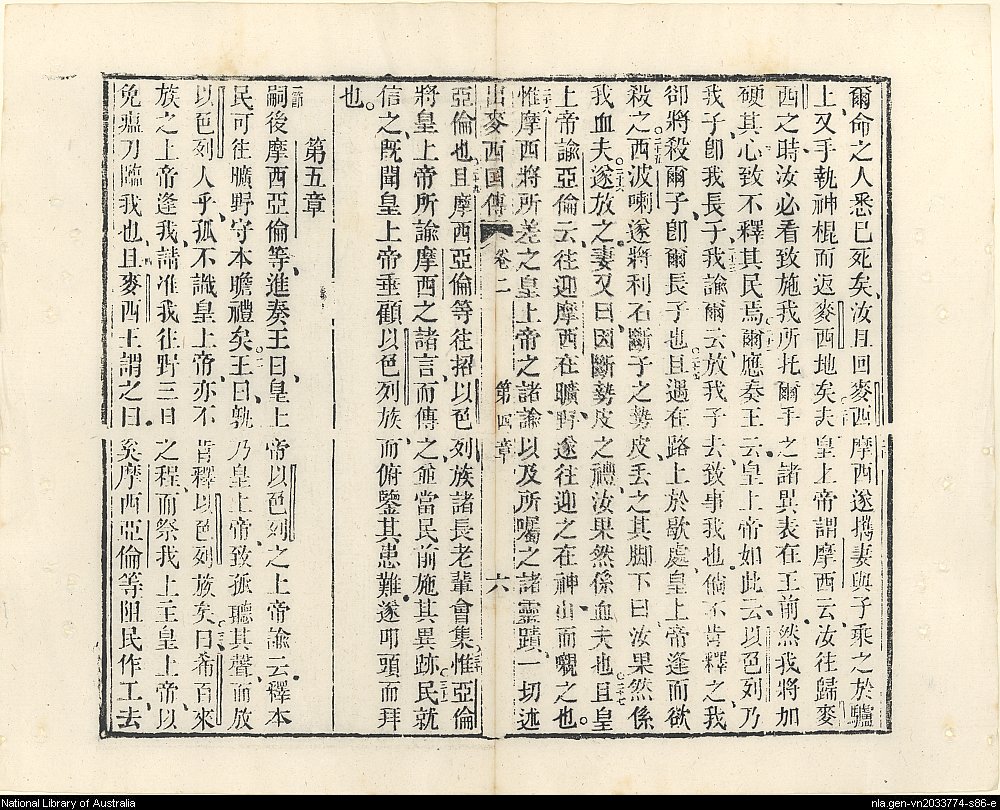 爾命之人悉已死矣汝且回麥西摩西遂攜妻與子乘之於驢
上又手執神棍而返麥西地矣夫皇上帝謂摩西云汝往歸麥
西之時汝必看致施我所托爾手之諸異表在王前然我將加
硬其心致不釋其民焉爾應奏王云皇上帝如此云以色列乃
我子卽我長子我諭爾云放我子去致事我也倘不肯釋之我
卻將殺爾子卽爾長子也且遇在路上於歇處皇上帝逢而欲
殺之西波喇遂將利石斷子之勢皮丟之其脚下曰汝果然係
我血夫遂放之妻又曰因斷勢皮之禮汝果然係血夫也且皇
上帝諭亞倫云往迎摩西在曠野遂往迎之在神山而嚫之也。
惟摩西將所差之皇上帝之諸諭以及所囑之諸靈蹟一切述
出麥西国傳 卷二 第四章 六
亞倫也且摩西亞倫等往招以色列族諸長老輩會集惟亞倫
將皇上帝所諭摩西之諸言而傳之並當民前施其異跡民就
信之既聞皇上帝垂顧以色列族而俯鑒其患難遂叩頭而拜
也。
第五章
一節嗣後摩西亞倫等進奏王曰皇上帝以色列之上帝諭云釋本
民可往曠野守本瞻禮矣王曰孰乃皇上帝致孤聽其聲而放
以色列人乎孤不識皇上帝亦不肯釋以色列族矣曰希百來
族之上帝逢我請准我往野三日之程而祭我上主皇上帝以
免瘟刀臨我也且麥西王謂之曰矣摩西亞倫等阻民作工去
nla.gen-vn2033774-s86-e
National Library of Australia